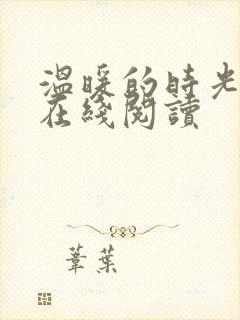 温暖的時光
在綫閱讀
葦葉